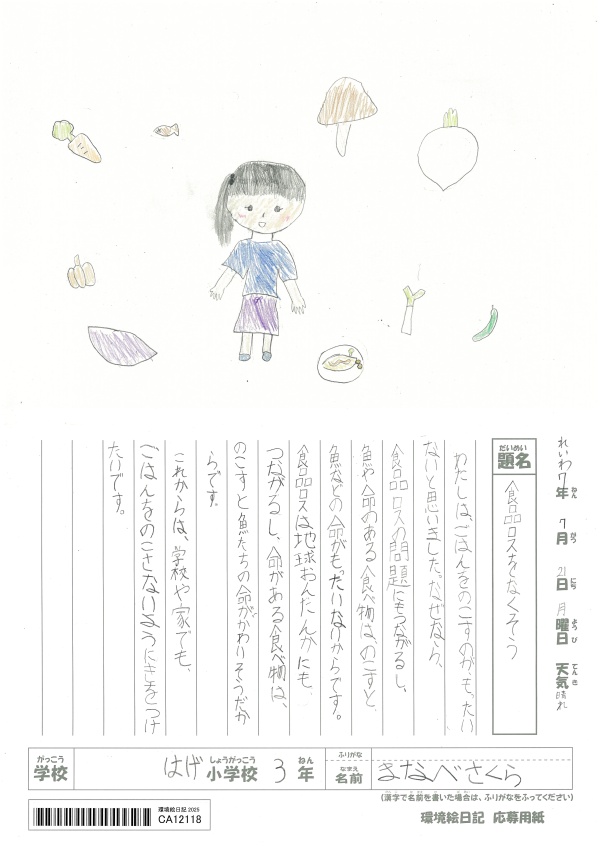 れいわ7年 7月 21日 月曜日 天気 晴れ
ねん がつ にち ようび てんき
だいめい
題名
食品ロスをなくそう
わたしは、ごはんをのこすのが、もったい
ないと思いました。なぜなら、
食品ロスの問題にもつながるし、
魚や命のある食べ物は、のこすと、
魚などの命がもったいないからです。
食品ロスは地球おんだんかにも、
つながるし、命がある食べ物は、
のこすと魚たちの命がかわいそうだか
らです。
これからは、学校や家でも、
ごはんをのこさないようにきをつけ
たいです。
がっこう
学校
はげ
しょうがっこう
小学校
3
ねん
年
ふりがな
なまえ
名前
まなべさくら
(漢字で名前を書いた場合は、ふりがなをふってください)
環境絵日記 2025
CA12118
環境絵日記 応募用紙